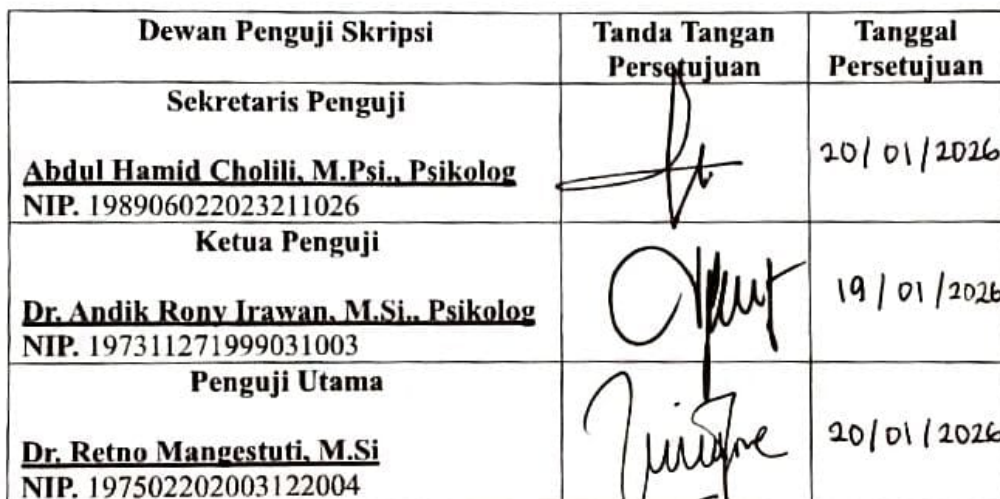 Dewan Penguji Skripsi
Tanda Tangan
Persetujuan
Tanggal
Persetujuan
Sekretaris Penguji
Abdul Hamid Cholili, M.Psi., Psikolog
NIP. 198906022023211026
20/01/2026
Ketua Penguji
Dr. Andik Rony Irawan, M.Si., Psikolog
NIP. 197311271999031003
19/01/2026
Penguji Utama
Dr. Retno Mangestuti, M.Si
NIP. 197502202003122004
20/01/2026